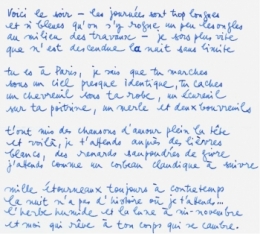 Voici le soir – les journées sont trop longues
et si bleues qu'on s'y rogne un peu les ongles
au milien des travaux – je sors plus vite
que n'est descendue la nuit sans limite
tu es à Paris, je sais que tu marches
sous un ciel presque identique, tu caches
un chevreuil sous ta robe, un écureuil
sur ta poitrine, un merle et deux bouvreuils
t'ont mis des chansons d'amour plein la tête
et voilà, je t'attends auprès des lièvres
blancs, des renards saupoudrés de givre
j'attends comme un corbeau claudique à suivre
mille étourneaux toujours à contretemps
la nuit n'a pas d'histoire où je t'attends...
l'herbe humide et la lune à mi-novembre
et moi qui rêve à ton corps qui se cambre.